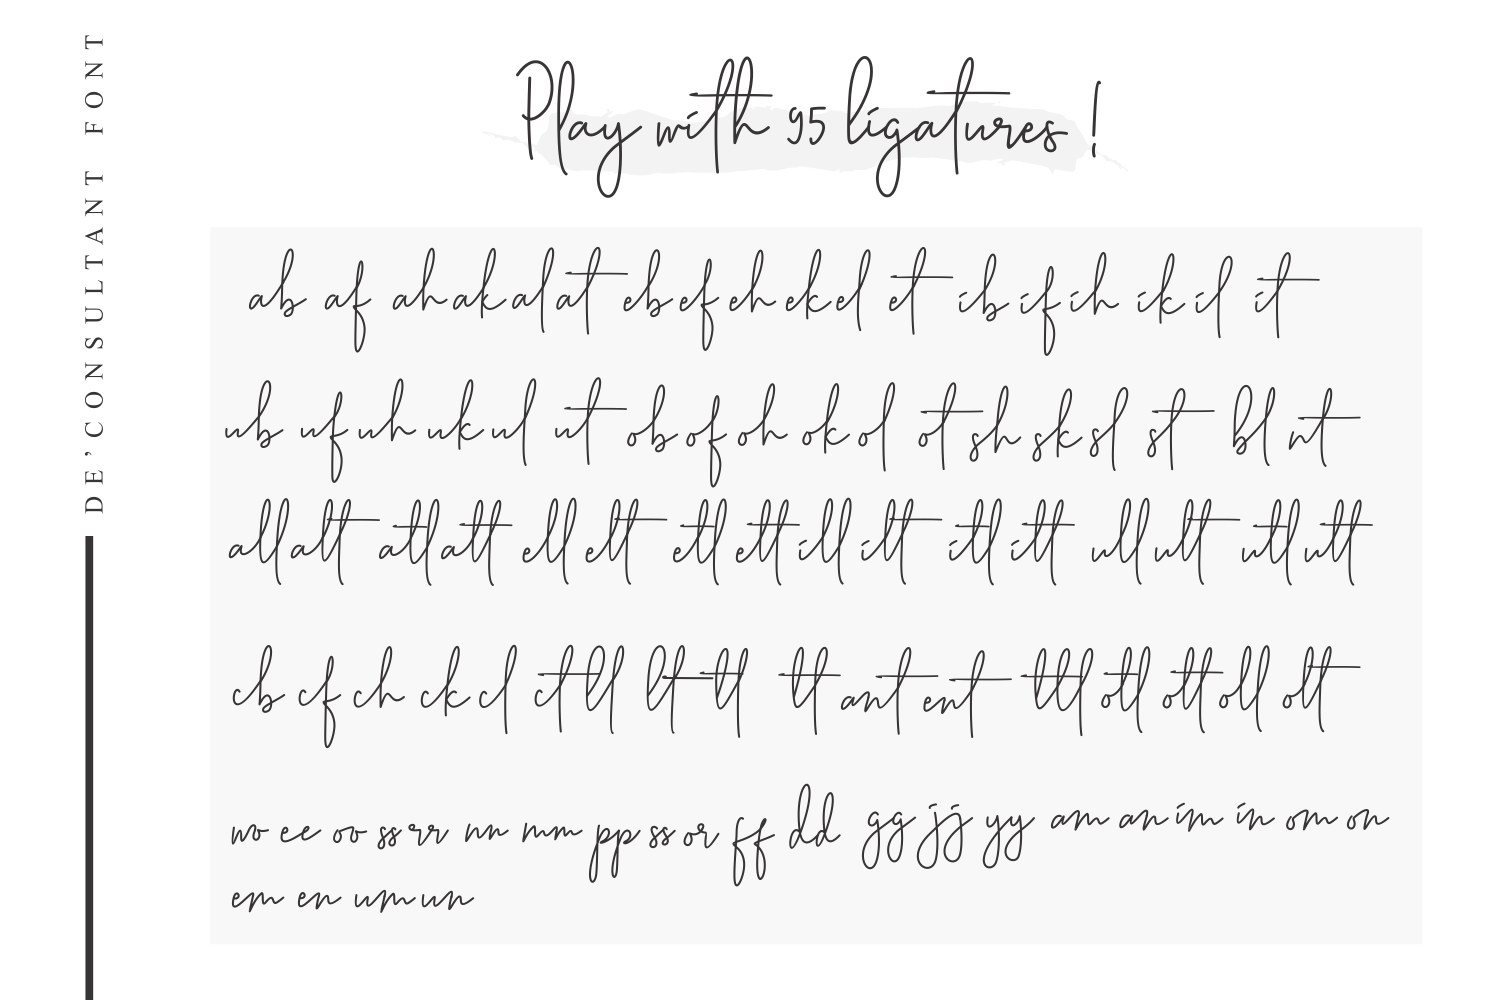 DE'CONSULTANT FONT
Play with 95 ligatures!
ab af ah ak al at eb ef eh ek el et ib if ih ik il it
ub uf uh uk ul ut ob of oh ok ol ot sh sk sl st bl nt
all alt atl att ell elt etl ett ill ilt itl itt ull ult utl utt
cb cf ch ck cl ct ll lt tl tt ant ent ttl otl ott oll olt
wo ee ov ss rr nn mm pp ss or ff dd gg jj yy am an im in om on
em en um un